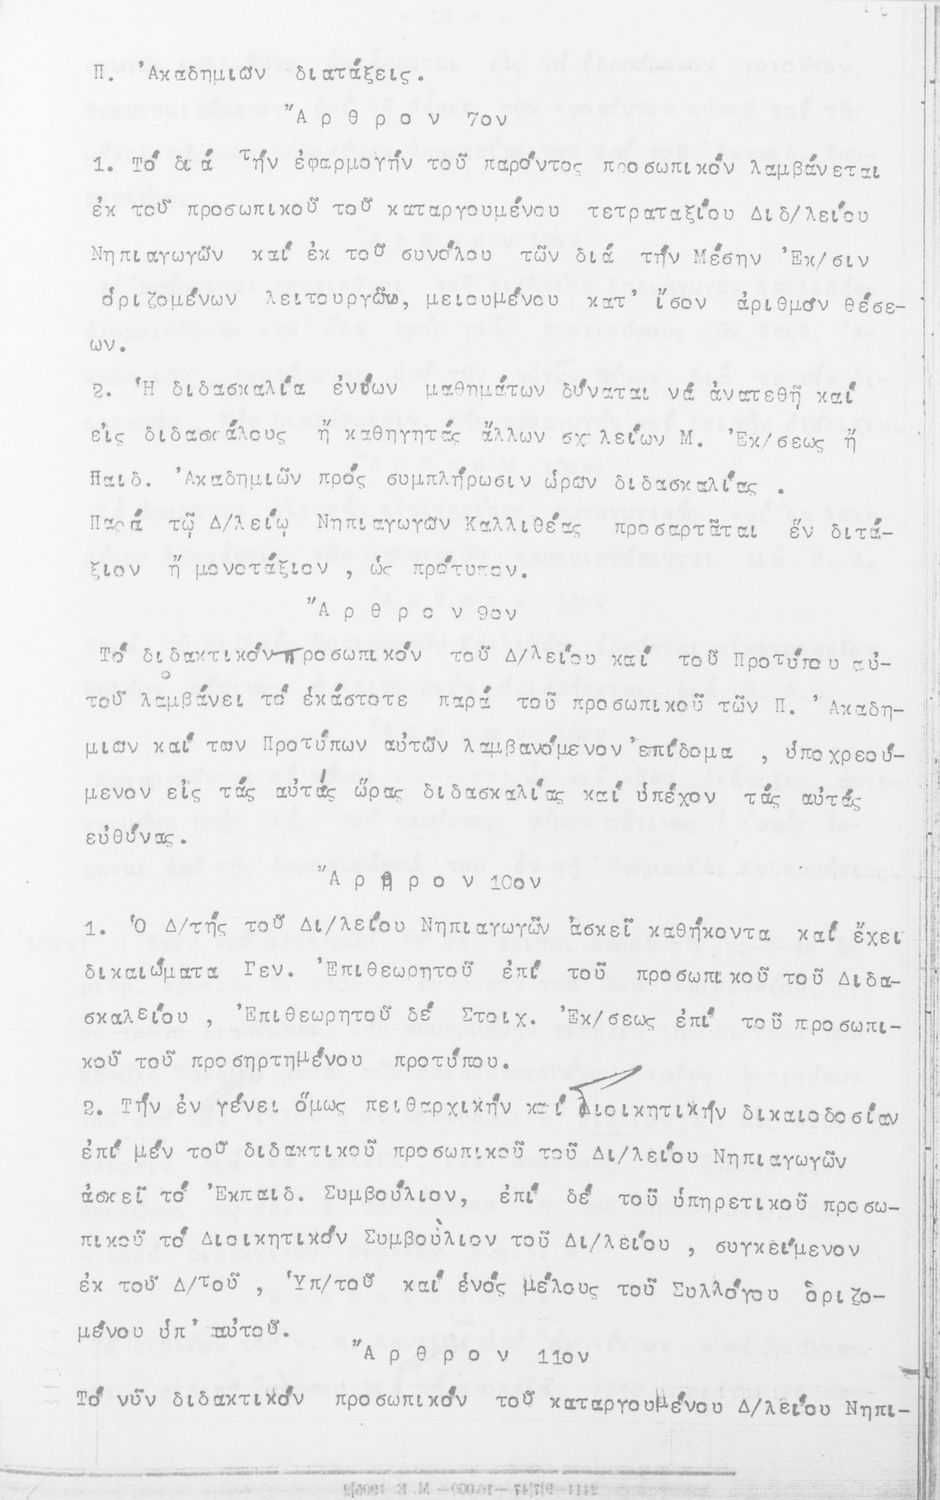 Π. Ἀκαδημιῶν διατάξεις.
Ἄρθρον 7ον
1. Τό διά τήν ἐφαρμογήν τοῦ παρόντος προσωπικόν λαμβάνεται
ἐκ τοῦ προσωπικοῦ τοῦ καταργουμένου τετραταξίου Διδ/λείου
Νηπιαγωγῶν καί ἐκ τοῦ συνόλου τῶν διά τήν Μέσην Ἐκ/σιν
ὁριζομένων λειτουργῶν, μειουμένου κατ' ἴσον ἀριθμόν θέσε-
ων.
2. Ἡ διδασκαλία ἐνίων μαθημάτων δύναται νά ἀνατεθῇ καί
εἰς διδασκάλους ἤ καθηγητάς ἄλλων σχολείων Μ. Ἐκ/σεως ἤ
Παιδ. Ἀκαδημιῶν πρός συμπλήρωσιν ὡρῶν διδασκαλίας .
Παρά τῷ Δ/λείῳ Νηπιαγωγῶν Καλλιθέας προσαρτᾶται ἕν διτά-
ξιον ἤ μονοτάξιον , ὡς πρότυπον.
Ἄρθρον 9ον
Τό διδακτικόν προσωπικόν τοῦ Δ/λείου καί τοῦ Προτύπου αὐ-
τοῦ λαμβάνει τό ἑκάστοτε παρά τοῦ προσωπικοῦ τῶν Π. Ἀκαδη-
μιῶν καί των Προτύπων αὐτῶν λαμβανόμενον ἐπίδομα , ὑποχρεού-
μενον εἰς τάς αὐτάς ὥρας διδασκαλίας καί ὑπέχον τάς αὐτάς
εὐθύνας.
Ἄρθρον 10ον
1. Ὁ Δ/τής τοῦ Δι/λείου Νηπιαγωγῶν ἀσκεῖ καθήκοντα καί ἔχει
δικαιώματα Γεν. Ἐπιθεωρητοῦ ἐπί τοῦ προσωπικοῦ τοῦ Διδα-
σκαλείου , Ἐπιθεωρητοῦ δέ Στοιχ. Ἐκ/σεως ἐπί τοῦ προσωπι-
κοῦ τοῦ προσηρτημένου προτύπου.
2. Τήν ἐν γένει ὅμως πειθαρχικήν καί Διοικητικήν δικαιοδοσίαν
ἐπί μέν τοῦ διδακτικοῦ προσωπικοῦ τοῦ Δι/λείου Νηπιαγωγῶν
ἀσκεῖ τό Ἐκπαιδ. Συμβούλιον, ἐπί δέ τοῦ ὑπηρετικοῦ προσω-
πικοῦ τό Διοικητικόν Συμβούλιον τοῦ Δι/λείου , συγκείμενον
ἐκ τοῦ Δ/τοῦ , Ὑπ/τοῦ καί ἑνός μέλους τοῦ Συλλόγου ὁριζο-
μένου ὑπ' αὐτοῦ.
Ἄρθρον 11ον
Τό νῦν διδακτικόν προσωπικόν τοῦ καταργουμένου Δ/λείου Νηπι-